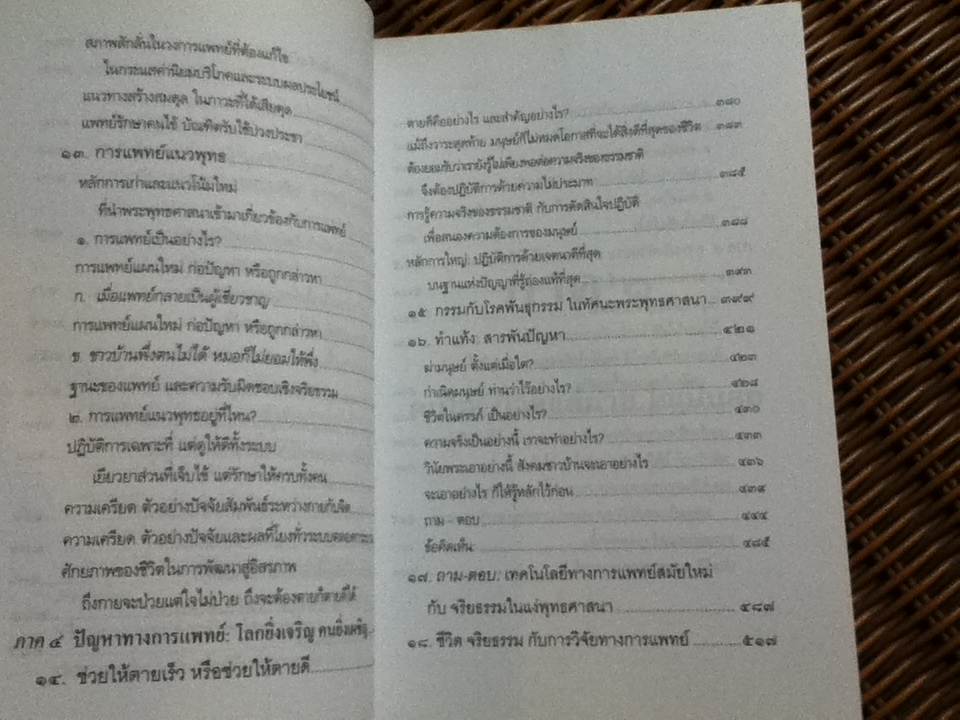 สภาพตึกลั่นในวงการแพทย์ที่ต้องแก้ไข
ในกระแสค่านิยมบริโภคและระบบผลประโยชน์
แนวทางสร้างสมดุล ในภาวะที่ได้เสียดุล
แพทย์รักษาคนไข้ บัณฑิตรับใช้ปวงประชา
๑๓. การแพทย์แนวพุทธ
หลักการเก่าและแนวโน้มใหม่
ที่นำพระพุทธศาสนาเข้ามาเกี่ยวข้องกับการแพทย์
๑. การแพทย์เป็นอย่างไร?
การแพทย์แผนใหม่ ก่อปัญหา หรือถูกกล่าวหา
ก. เมื่อแพทย์กลายเป็นผู้เชี่ยวชาญ
การแพทย์แผนใหม่ ก่อปัญหา หรือถูกกล่าวหา
ข. ชาวบ้านพึ่งตนไม่ได้ หมอก็ไม่ยอมให้พึ่ง
ฐานะของแพทย์ และความรับผิดชอบเชิงจริยธรรม
๒. การแพทย์แนวพุทธอยู่ที่ไหน?
ปฏิบัติการเฉพาะที่ แต่ดูให้ดีทั้งระบบ
เยียวยาส่วนที่เจ็บไข้ แต่รักษาให้ครบทั้งคน
ความเครียด ตัวอย่างปัจจัยสัมพันธ์ระหว่างกายกับจิต
ความเครียด ตัวอย่างปัจจัยและผลที่โยงทั่วระบบ
ศักยภาพของชีวิตในการพัฒนาสู่อิสรภาพ
ถึงกายจะป่วยแต่ใจไม่ป่วย ถึงจะต้องตายก็ตายดีได้
ภาค ๔ ปัญหาทางการแพทย์: โลกยิ่งเจริญ คนยิ่งเผชิญ
๑๔. ช่วยให้ตายเร็ว หรือช่วยให้ตายดี
ตายดีคืออย่างไร และสำคัญอย่างไร? ๓๘๐
แม้ถึงวาระสุดท้าย มนุษย์ก็ไม่หมดโอกาสที่จะได้สิ่งดีที่สุดของชีวิต ๓๘๓
ต้องยอมรับว่าเรายังรู้ไม่เพียงพอต่อความจริงของธรรมชาติ
จึงต้องปฏิบัติการด้วยความไม่ประมาท ๓๘๕
การรู้ความจริงของธรรมชาติ กับการตัดสินใจปฏิบัติ
เพื่อสนองความต้องการของมนุษย์ ๓๘๘
หลักการใหญ่: ปฏิบัติการด้วยเจตนาดีที่สุด
บนฐานแห่งปัญญาที่รู้ถ่องแท้ที่สุด ๓๙๓
๑๕ กรรมกับโรคพันธุกรรม ในทัศนะพระพุทธศาสนา ๓๙๙
๑๖. ทำแท้ง: สารพันปัญหา ๔๒๑
ฆ่ามนุษย์ ตั้งแต่เมื่อใด? ๔๒๓
กำเนิดมนุษย์ ท่านว่าไว้อย่างไร? ๔๒๘
ชีวิตในครรภ์ เป็นอย่างไร? ๔๓๐
ความจริงเป็นอย่างนี้ เราจะทำอย่างไร? ๔๓๓
วินัยพระเอาอย่างนี้ สังคมชาวบ้านจะเอาอย่างไร ๔๓๖
จะเอาอย่างไร ก็ให้รู้หลักไว้ก่อน ๔๓๙
ถาม - ตอบ ๔๔๔
ข้อคิดเห็น ๔๘๕
๑๗. ถาม-ตอบ: เทคโนโลยีทางการแพทย์สมัยใหม่
กับ จริยธรรมในแง่พุทธศาสนา ๕๘๗
๑๘. ชีวิต จริยธรรม กับการวิจัยทางการแพทย์ ๕๑๗